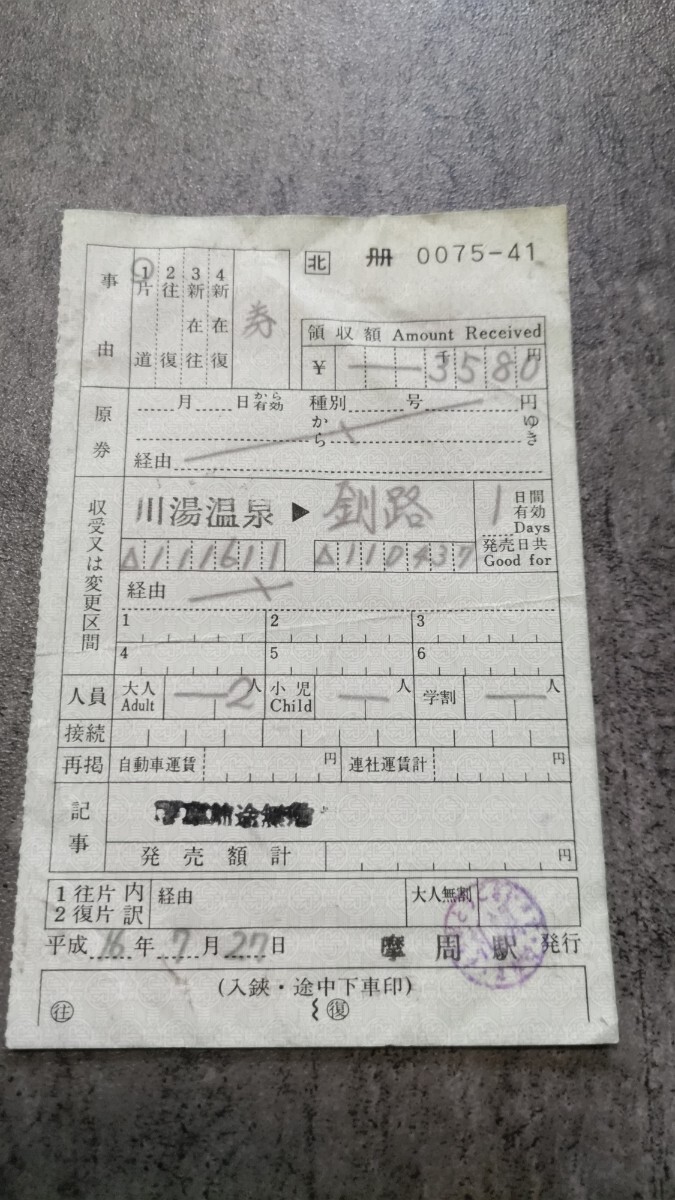 北 冊 0075-41
事由
1片道
2往復
3新在往
4新在復
券
領収額 Amount Received
¥ 千 3580 円
原券
月 日から有効 種別 号 円
から ゆき
経由
収受又は変更区間
川湯温泉 ▶ 釧路
1 日間有効 Days
発売日共 Good for
△111611 △110437
経由
1 2 3
4 5 6
人員 大人 Adult 2人 小児 Child 人 学割 人
接続
再掲 自動車運賃 円 連社運賃計 円
記事
発売額計 円
1往片内
2復片訳
経由 大人無割
平成16年7月27日 摩周駅 発行
(入鋏・途中下車印)
往 復